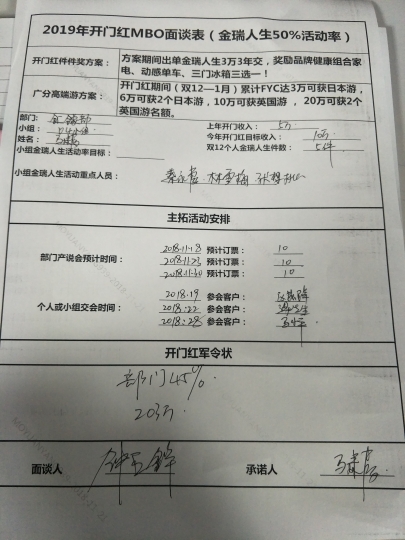 2019年开门红MBO面谈表（金瑞人生50%活动率）
开门红件件奖方案：
方案期间出单金瑞人生3万3年交，奖励品牌健康组合家电、动感单车、三门冰箱三选一！
广分高端游方案：
开门红期间（双12—1月）累计FYC达3万可获日本游，6万可获2个日本游，10万可获英国游，20万可获2个英国游名额。
部门：
上年开门收入： 5万
小组：
今年开门红目标收入： 10万
姓名：
双12个人金瑞人生件数： 5件
小组金瑞人生活动率目标：
小组金瑞人生活动重点人员：
主拓活动安排
部门产说会预计时间：
2018.11.18 预计订票： 10
2018.11.23 预计订票： 10
预计订票： 10
个人或小组交会时间：
2018.19 参会客户：
2018.22 参会客户：
2018.28 参会客户：
开门红军令状
部门45%
203万
面谈人
承诺人